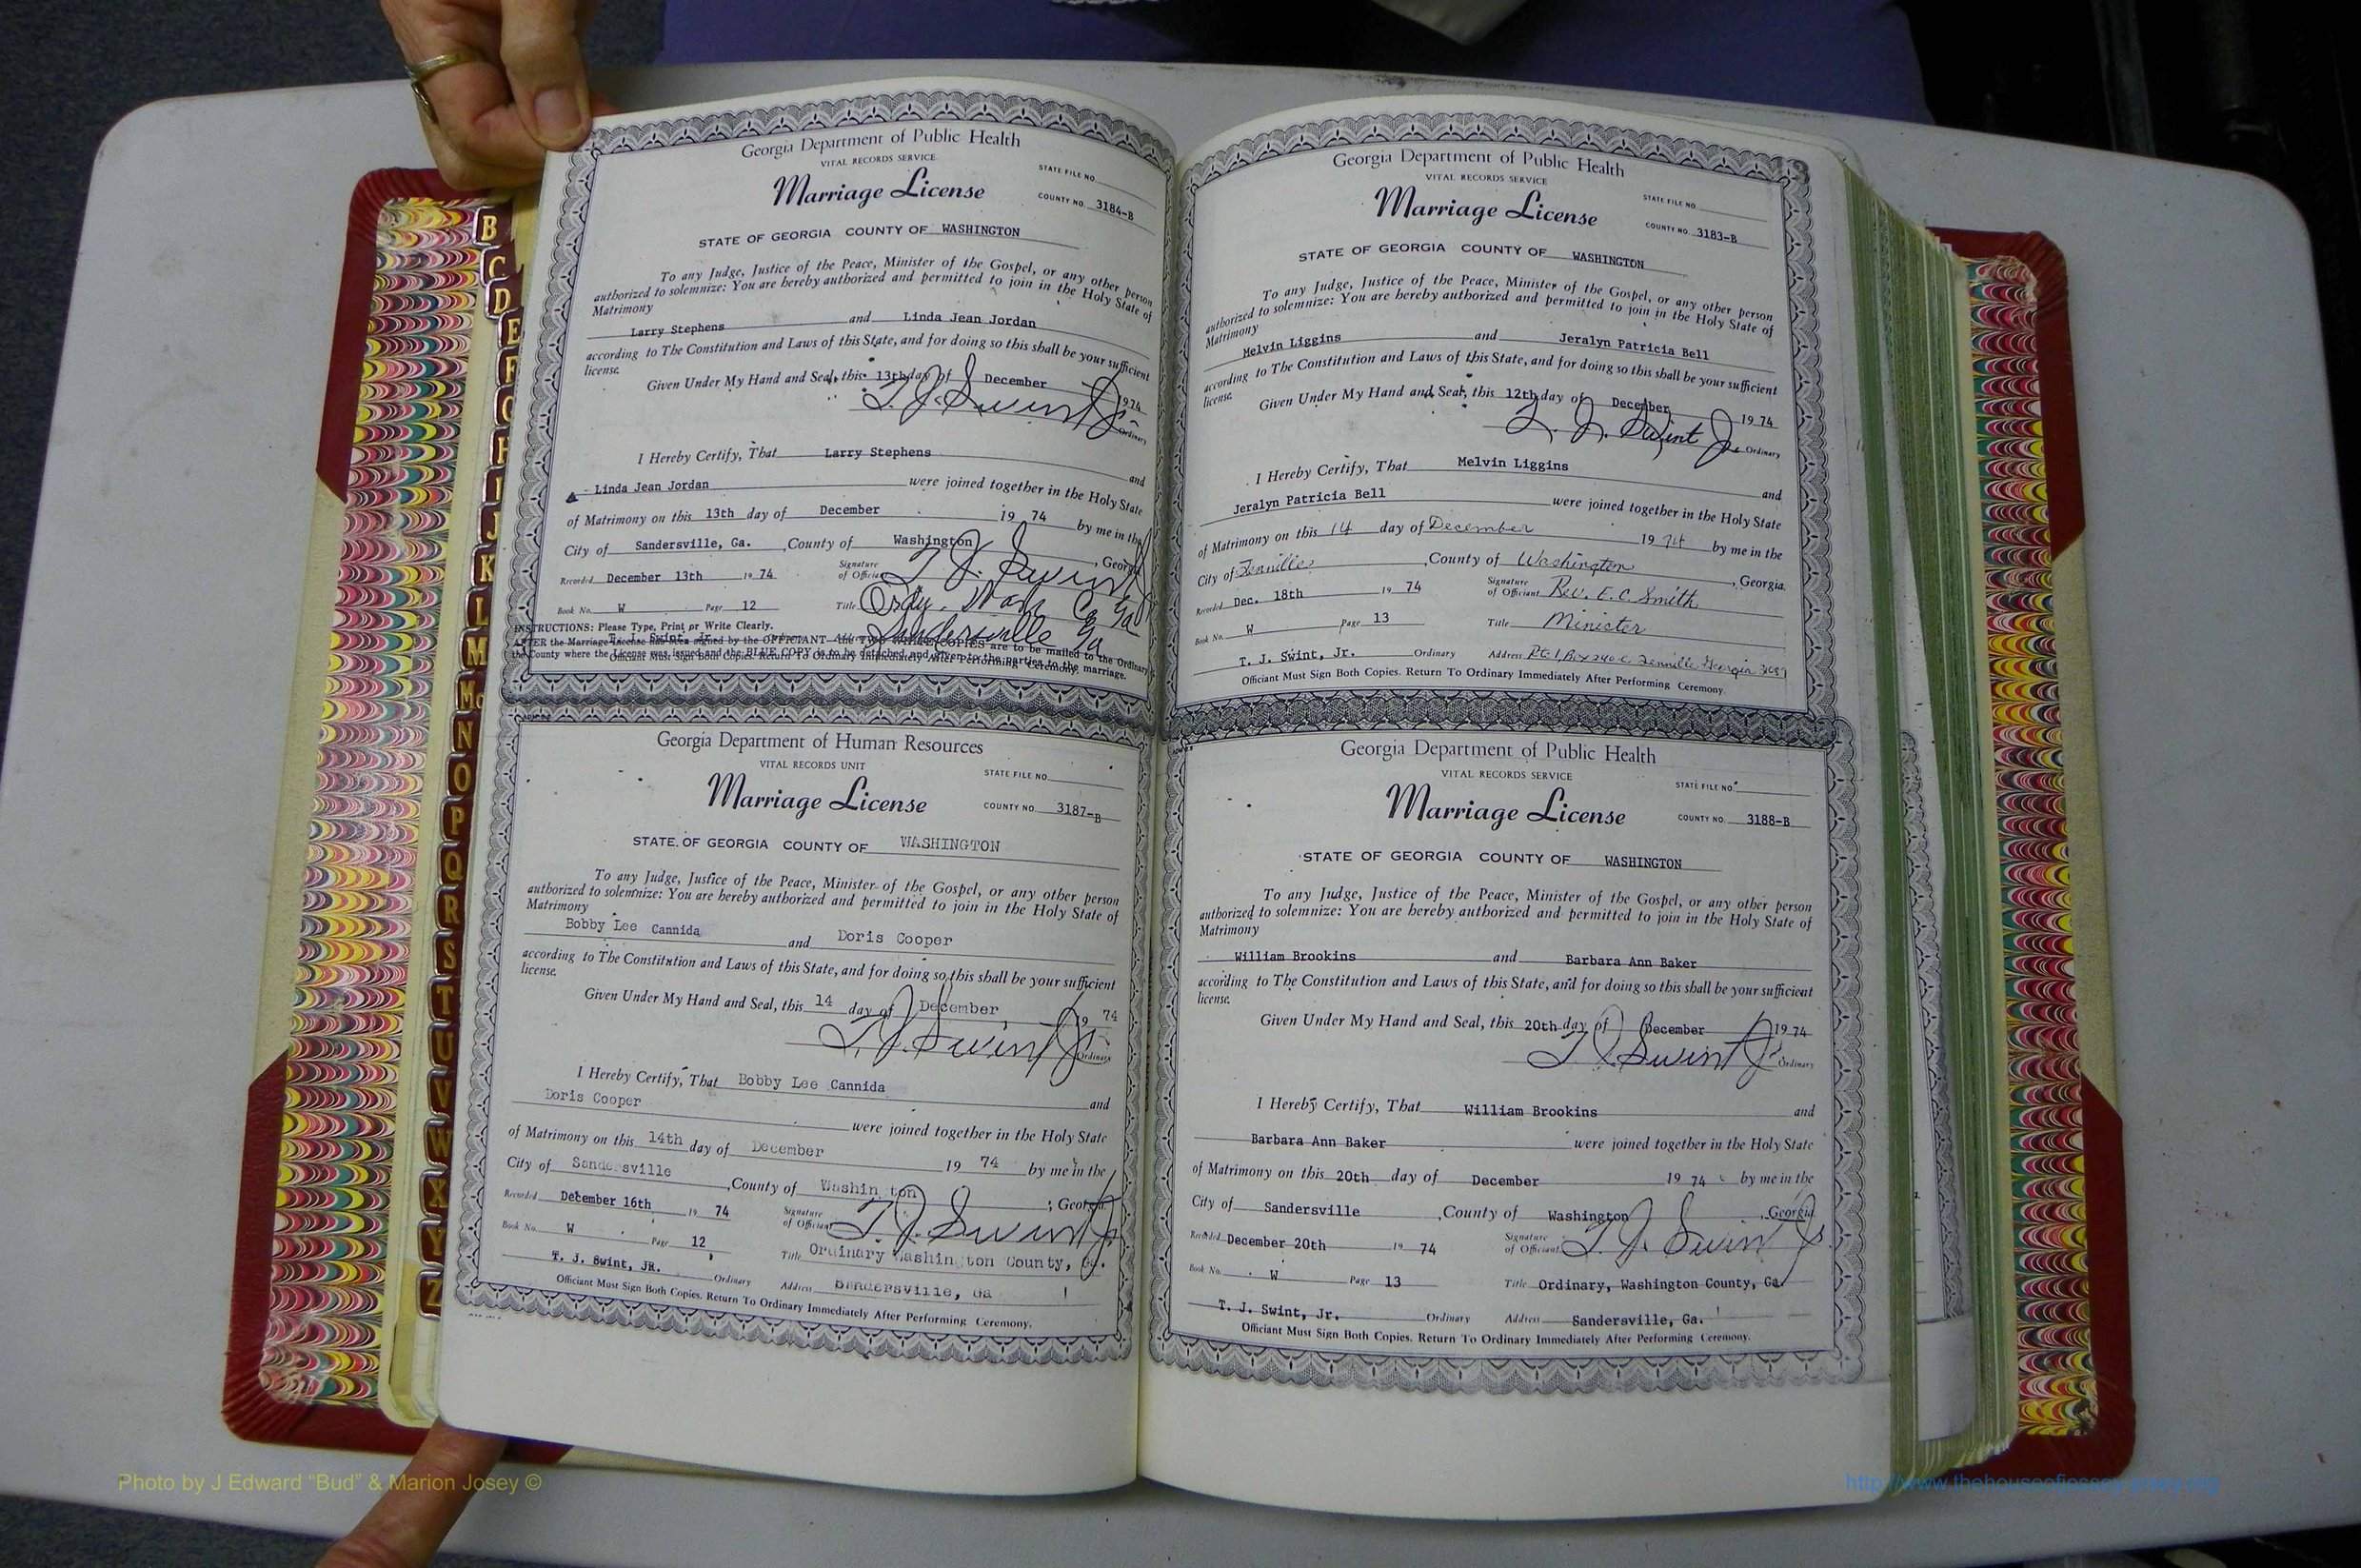 B
C
D
E
F
G
H
I
J
K
L
M
Mc
N
O
P
Q
R
S
T
U
V
W
X
Y
Z
Georgia Department of Public Health
VITAL RECORDS SERVICE
STATE FILE NO.
Marriage License
COUNTY NO. 3184-B
STATE OF GEORGIA COUNTY OF WASHINGTON
To any Judge, Justice of the Peace, Minister of the Gospel, or any other person
authorized to solemnize: You are hereby authorized and permitted to join in the Holy State of
Matrimony
Larry Stephens and Linda Jean Jordan
according to The Constitution and Laws of this State, and for doing so this shall be your sufficient
license.
Given Under My Hand and Seal, this 13th day of December 1974
T. J. Swint Jr. Ordinary
I Hereby Certify, That Larry Stephens and
Linda Jean Jordan were joined together in the Holy State
of Matrimony on this 13th day of December 19 74 by me in the
City of Sandersville, Ga. , County of Washington , Georgia
Recorded December 13th 19 74 Signature of Officiant T. J. Swint
Book No. W Page 12 Title Ordy. Wash Co Ga
INSTRUCTIONS: Please Type, Print or Write Clearly.
T. J. Swint, Jr. Sandersville Ga
AFTER the Marriage License has been signed by the OFFICIANT the TWO WHITE COPIES are to be mailed to the Ordinary
the County where the License was issued and the BLUE COPY is to be detached and given to the parties to the marriage.
Officiant Must Sign Both Copies. Return To Ordinary Immediately After Performing Ceremony.
Georgia Department of Human Resources
VITAL RECORDS UNIT
STATE FILE NO.
Marriage License
COUNTY NO. 3187-B
STATE OF GEORGIA COUNTY OF WASHINGTON
To any Judge, Justice of the Peace, Minister of the Gospel, or any other person
authorized to solemnize: You are hereby authorized and permitted to join in the Holy State of
Matrimony
Bobby Lee Cannida and Doris Cooper
according to The Constitution and Laws of this State, and for doing so this shall be your sufficient
license.
Given Under My Hand and Seal, this 14 day of December, 19 74
T. J. Swint Jr. Ordinary
I Hereby Certify, That Bobby Lee Cannida
Doris Cooper and
were joined together in the Holy State
of Matrimony on this 14th day of December 19 74 by me in the
City of Sandersville , County of Washington , Georgia
Recorded December 16th 19 74 Signature of Officiant T. J. Swint Jr
Book No. W Page 12 Title Ordinary Washington County, Ga.
T. J. Swint, JR. Ordinary Address Sandersville, Ga
Officiant Must Sign Both Copies. Return To Ordinary Immediately After Performing Ceremony.
Georgia Department of Public Health
VITAL RECORDS SERVICE
STATE FILE NO.
Marriage License
COUNTY NO. 3183-B
STATE OF GEORGIA COUNTY OF WASHINGTON
To any Judge, Justice of the Peace, Minister of the Gospel, or any other person
authorized to solemnize: You are hereby authorized and permitted to join in the Holy State of
Matrimony
Melvin Liggins and Jeralyn Patricia Bell
according to The Constitution and Laws of this State, and for doing so this shall be your sufficient
license.
Given Under My Hand and Seal, this 12th day of December 19 74
T. J. Swint Jr. Ordinary
I Hereby Certify, That Melvin Liggins and
Jeralyn Patricia Bell were joined together in the Holy State
of Matrimony on this 14 day of December 19 74 by me in the
City of Tennille , County of Washington , Georgia.
Recorded Dec. 18th 19 74 Signature of Officiant Rev. E. C. Smith
Book No. W Page 13 Title Minister
T. J. Swint, Jr. Ordinary Address Rte 1 Box 240 C Tennille Georgia
Officiant Must Sign Both Copies. Return To Ordinary Immediately After Performing Ceremony.
Georgia Department of Public Health
VITAL RECORDS SERVICE
STATE FILE NO.
Marriage License
COUNTY NO. 3188-B
STATE OF GEORGIA COUNTY OF WASHINGTON
To any Judge, Justice of the Peace, Minister of the Gospel, or any other person
authorized to solemnize: You are hereby authorized and permitted to join in the Holy State of
Matrimony
William Brookins and Barbara Ann Baker
according to The Constitution and Laws of this State, and for doing so this shall be your sufficient
license.
Given Under My Hand and Seal, this 20th day of December 19 74
T. J. Swint Jr. Ordinary
I Hereby Certify, That William Brookins and
Barbara Ann Baker were joined together in the Holy State
of Matrimony on this 20th day of December 19 74 by me in the
City of Sandersville , County of Washington , Georgia
Recorded December 20th 19 74 Signature of Officiant T. J. Swint Jr
Book No. W Page 13 Title Ordinary, Washington County, Ga.
T. J. Swint, Jr. Ordinary Address Sandersville, Ga.
Officiant Must Sign Both Copies. Return To Ordinary Immediately After Performing Ceremony.
Photo by J Edward “Bud” & Marion Josey ©
http://www.thehouseofjossey-josey.org